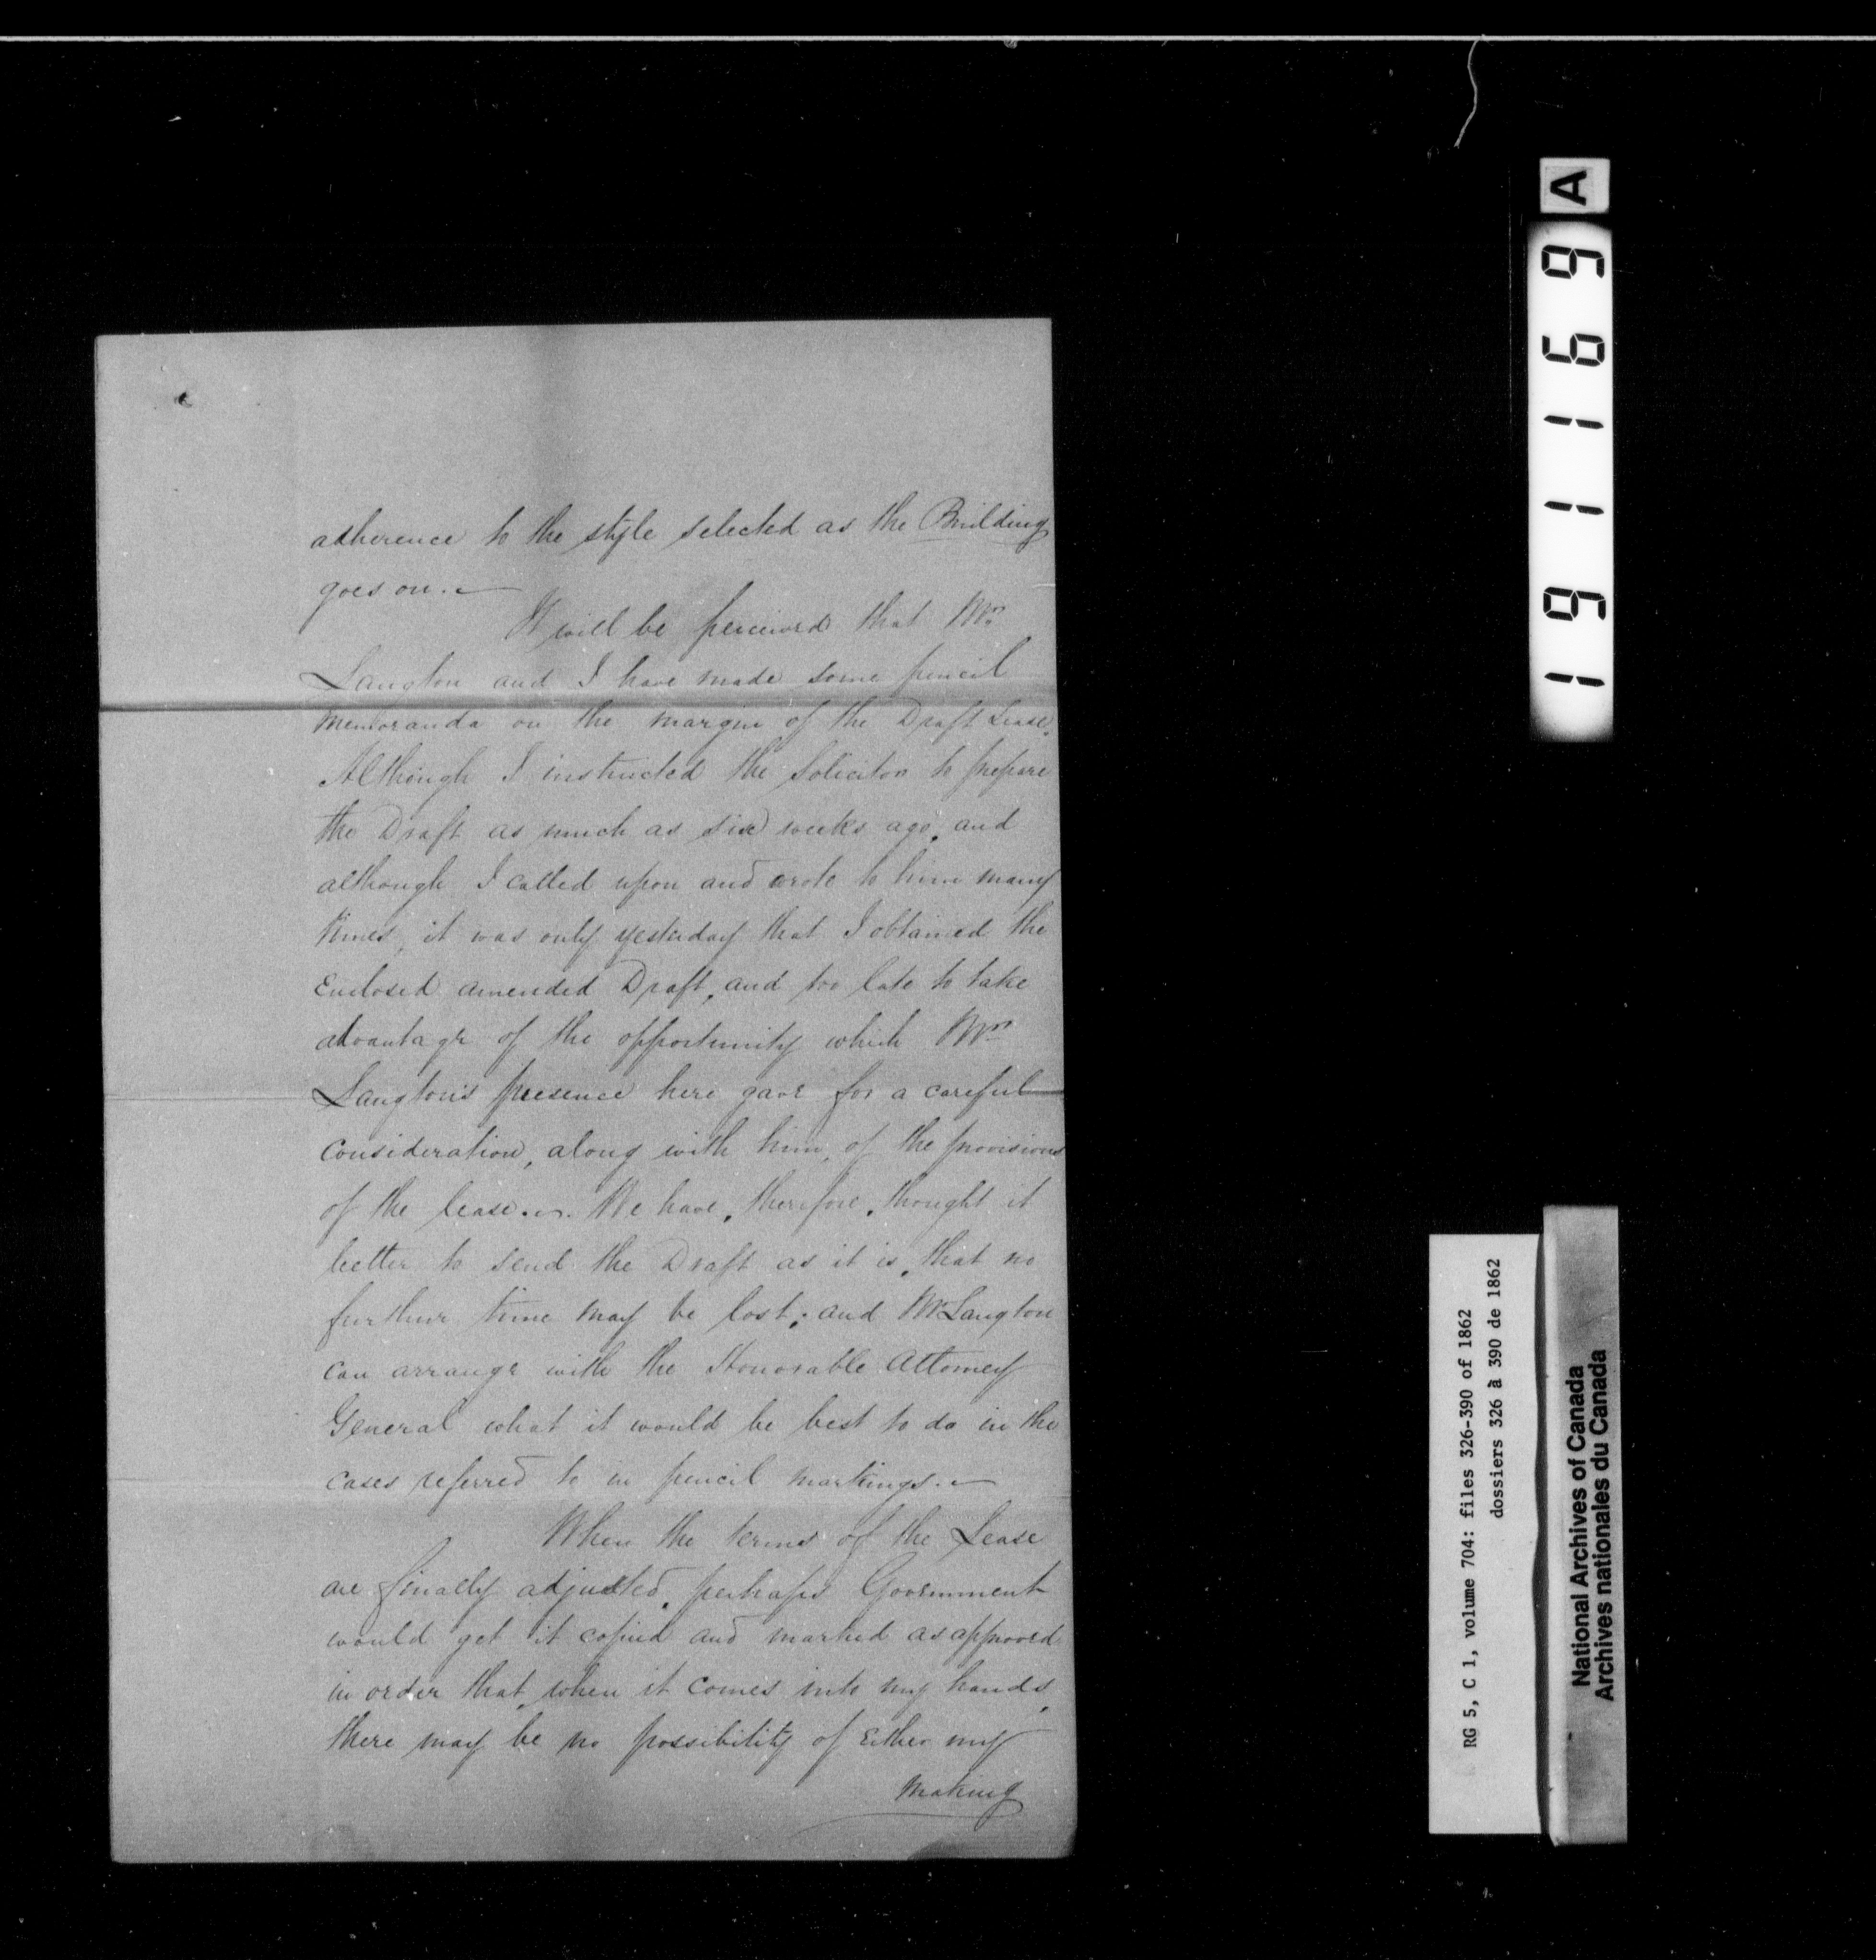 adherence to the style selected as the Building
goes on. —
It will be perceived that Mr.
Langton and I have made some pencil
memoranda on the margin of the Draft Lease.
Although I instructed the Solicitor to prepare
the Draft as much as six weeks ago, and
although I called upon and wrote to him many
times, it was only yesterday that I obtained the
Enclosed amended Draft, and too late to take
advantage of the opportunity which Mr
Langton's presence here gave for a careful
consideration, along with him, of the provisions
of the lease. We have, therefore, thought it
better to send the Draft as it is, that no
further time may be lost; and Mr Langton
can arrange with the Honorable Attorney
General what it would be best to do in the
cases referred to in pencil markings. —
When the terms of the Lease
are finally adjusted, perhaps Government
would get it copied and marked as approved
in order that, when it comes into my hands,
there may be no possibility of Either my
making
A
191169
RG 5, C 1, volume 704: files 326-390 of 1862
dossiers 326 à 390 de 1862
National Archives of Canada
Archives nationales du Canada